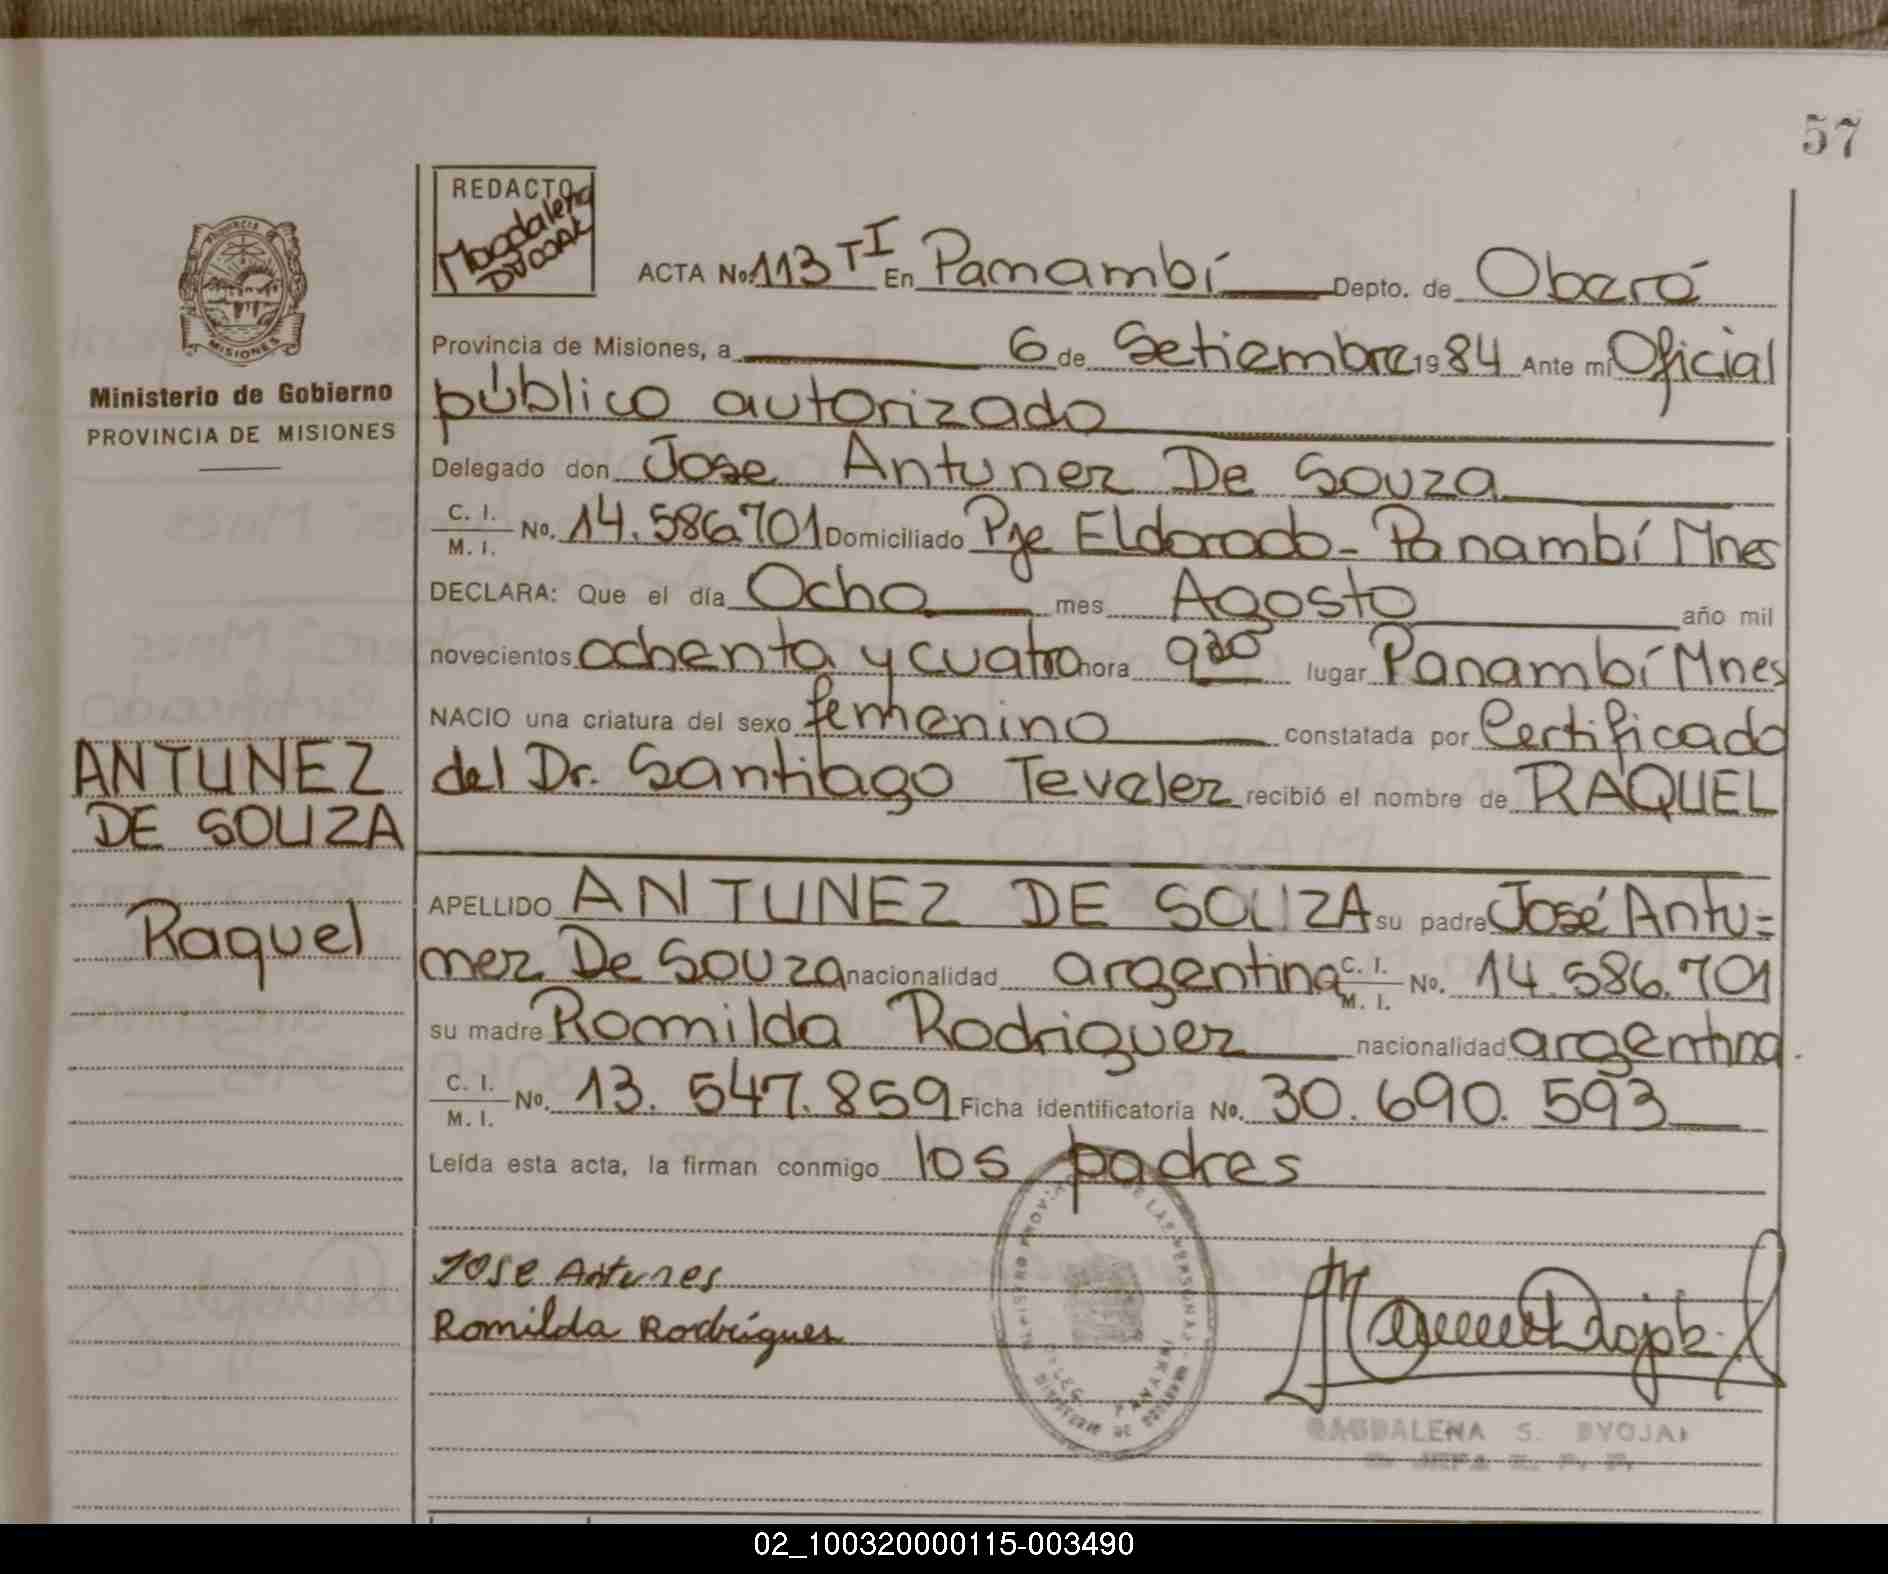 57
REDACTO
Magdalena
DYOJAK
ACTA No. 113 TI En Panambí Depto. de Oberá
PROVINCIA DE
MISIONES
Provincia de Misiones, a 6 de Setiembre 1984 Ante mí Oficial
Ministerio de Gobierno
PROVINCIA DE MISIONES
público autorizado
Delegado don Jose Antunez De Souza
C. I.
M. I. No. 14.586.701 Domiciliado Pje Eldorado - Panambí Mnes
DECLARA: Que el día Ocho mes Agosto año mil
novecientos ochenta y cuatro hora 930 lugar Panambí Mnes
NACIO una criatura del sexo femenino constatada por Certificado
ANTUNEZ
DE SOUZA
Raquel
del Dr. Santiago Tevelez recibió el nombre de RAQUEL
APELLIDO ANTUNEZ DE SOUZA su padre José Antu=
nez De Souza nacionalidad argentina C. I. M. I. No. 14.586.701
su madre Romilda Rodriguez nacionalidad argentina.
C. I.
M. I. No. 13.547.859 Ficha identificatoria No. 30.690.593
Leída esta acta, la firman conmigo los padres
Jose Antunes
Romilda Rodrígues
MAGDALENA S. DYOJAK
02_100320000115-003490